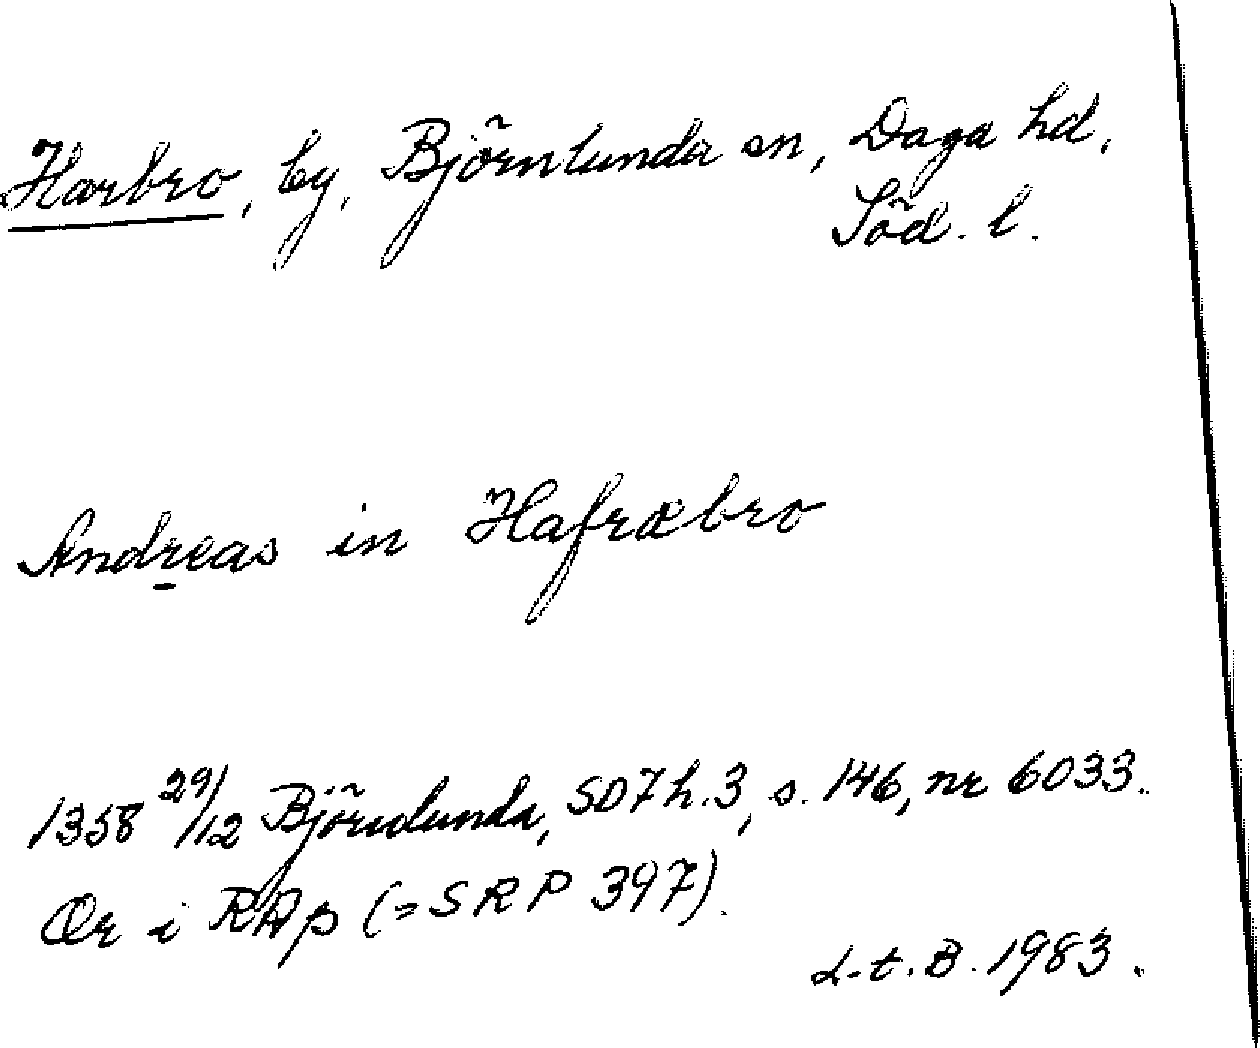 Harbro, by, Björnlunda sn, Daga hd,
Söd. l.
Andreas in Hafræbro
1358 29/12 Björnlunda, SD7 h.3, s. 146, nr 6033.
Or i RAp (=SRP 397).
L.t.B. 1983.